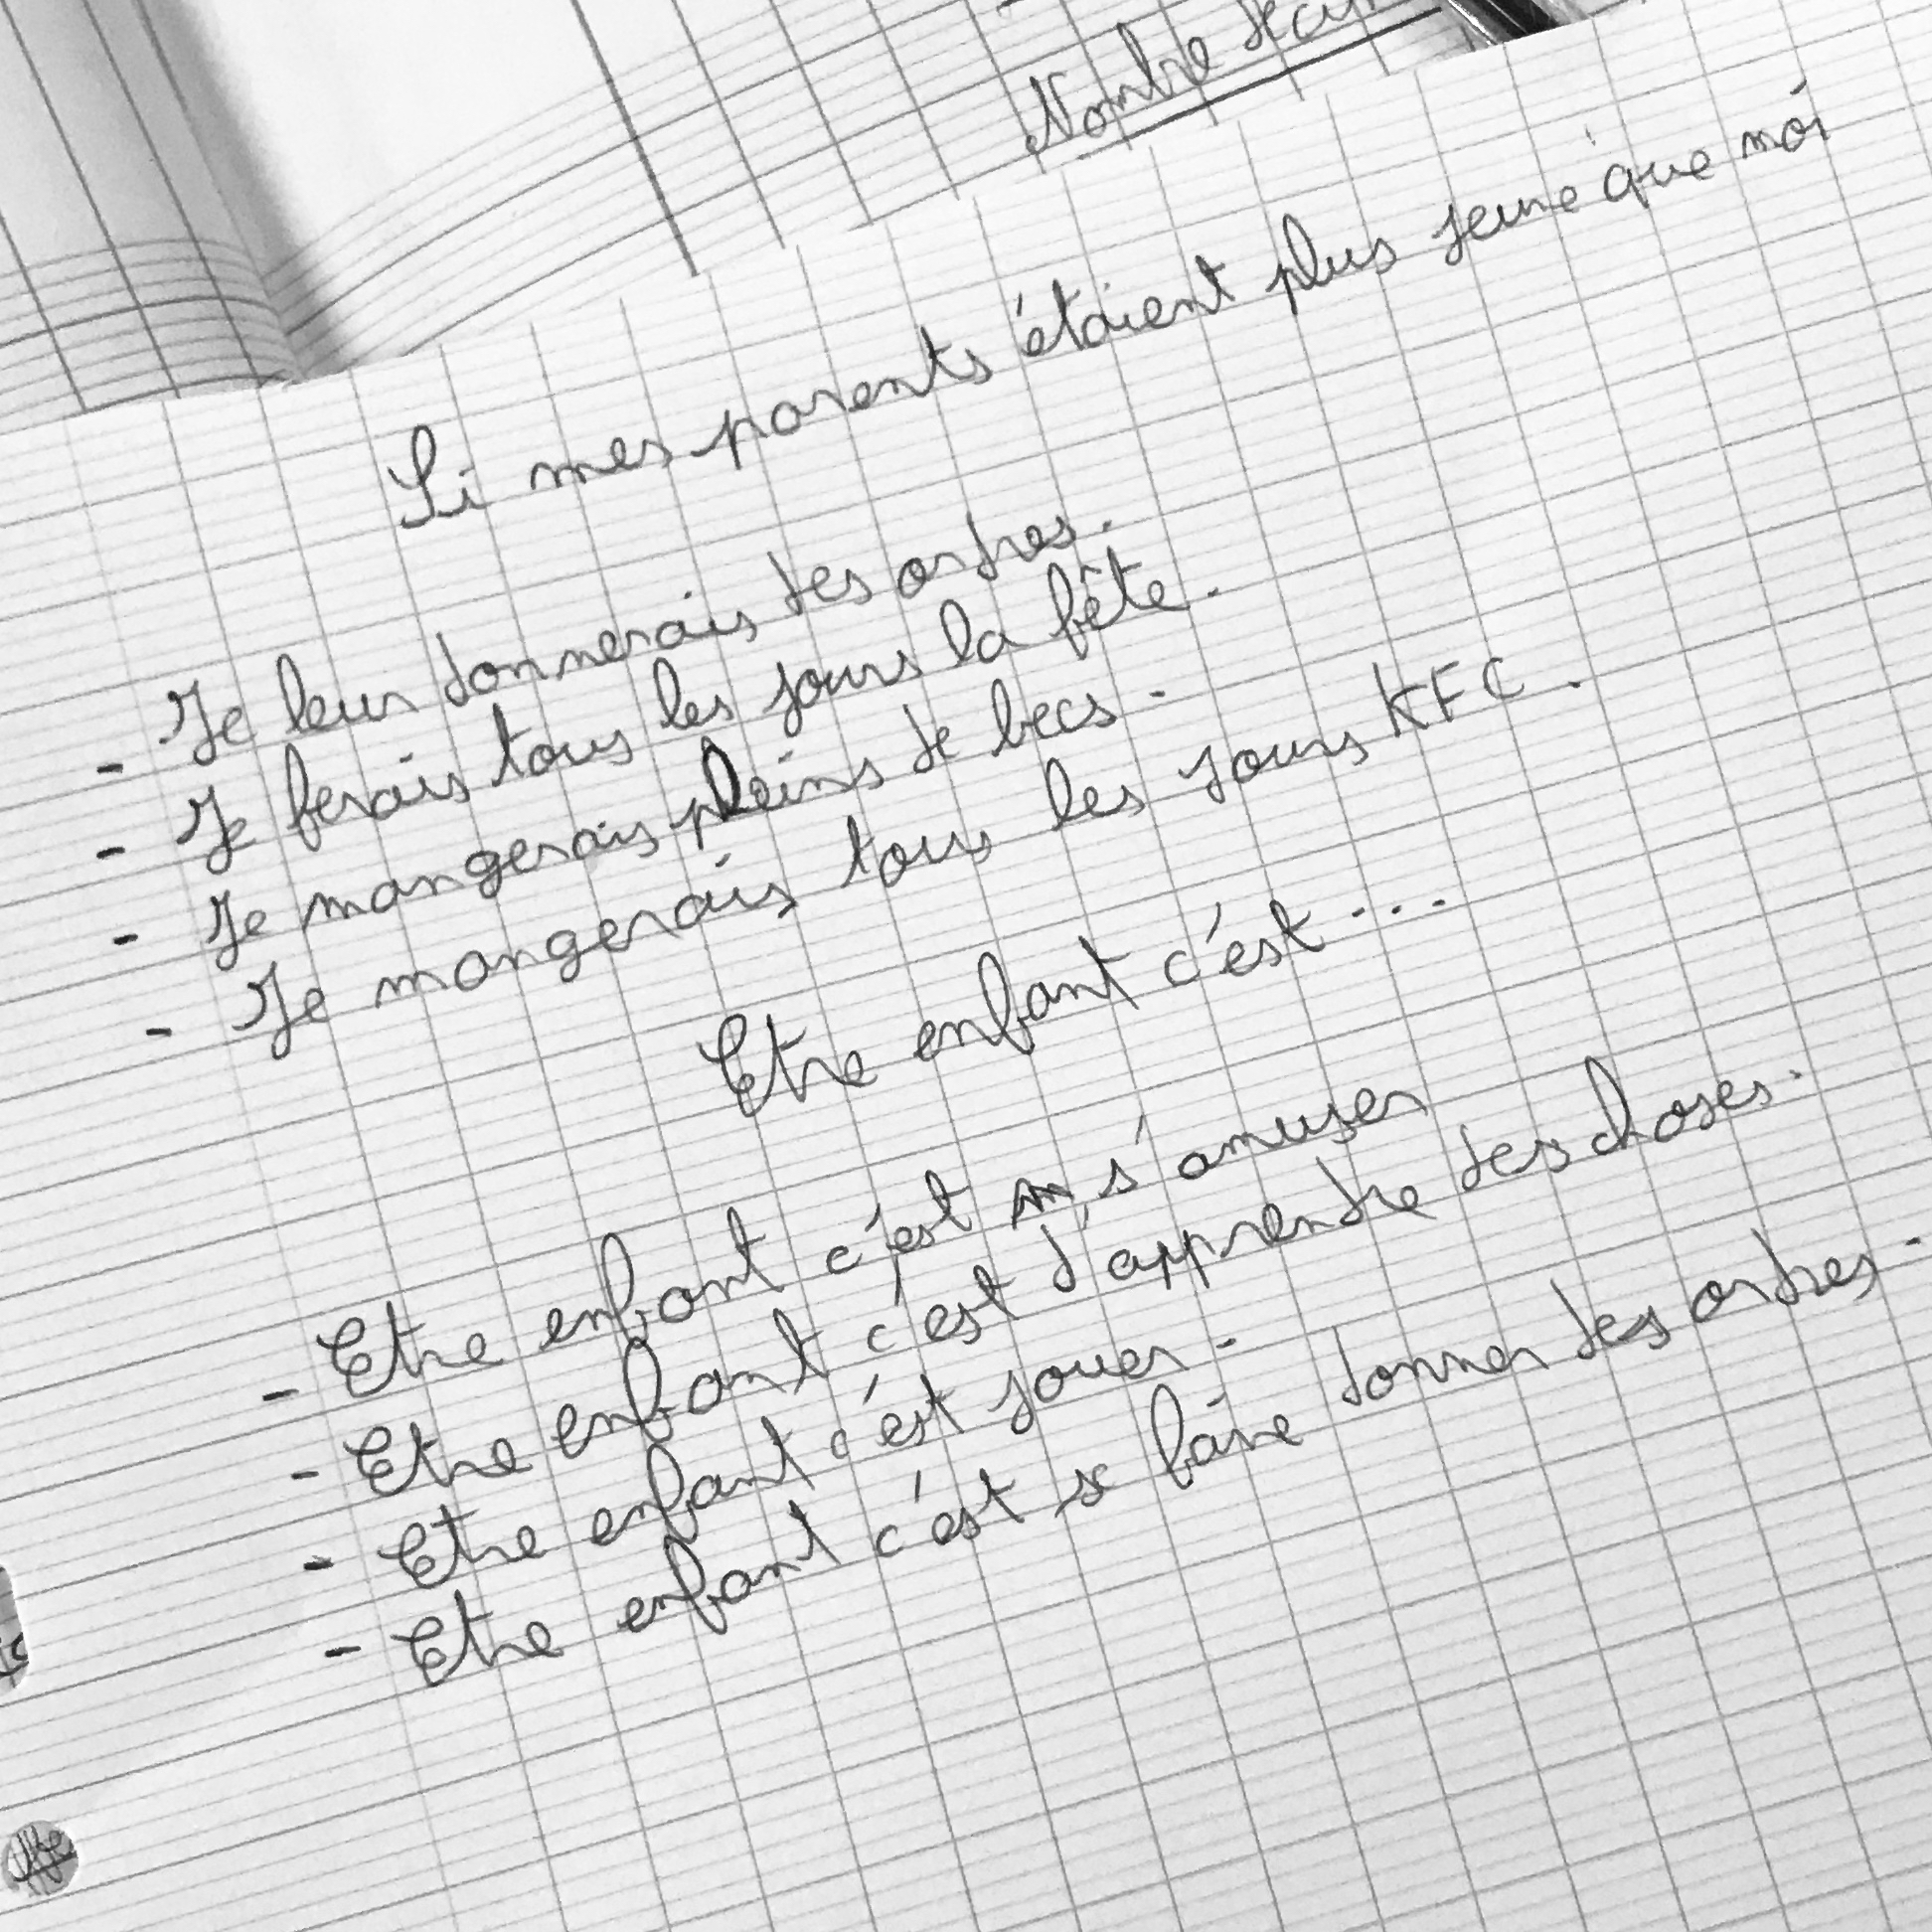 Nombre
Si mes parents étaient plus jeune que moi
- Je leur donnerais des ordres.
- Je ferais tous les jours la fête.
- Je mangerais pleins de becs.
- Je mangerais tous les jours KFC.
Etre enfant c'est...
- Etre enfant c'est s'amuser
- Etre enfant c'est d'apprendre des choses.
- Etre enfant c'est jouer.
- Etre enfant c'est se faire donner des ordres.